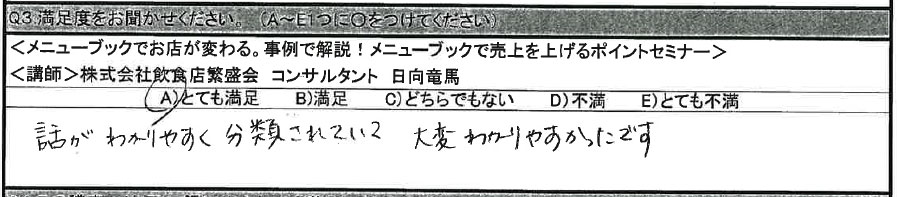 Q3.満足度をお聞かせください。（A～E1つに○をつけてください）
＜メニューブックでお店が変わる。事例で解説！メニューブックで売上を上げるポイントセミナー＞
＜講師＞株式会社飲食店繁盛会　コンサルタント　日向竜馬
A)とても満足　B)満足　C)どちらでもない　D)不満　E)とても不満
話が わかりやすく 分類されていて　大変 わかりやすかったです